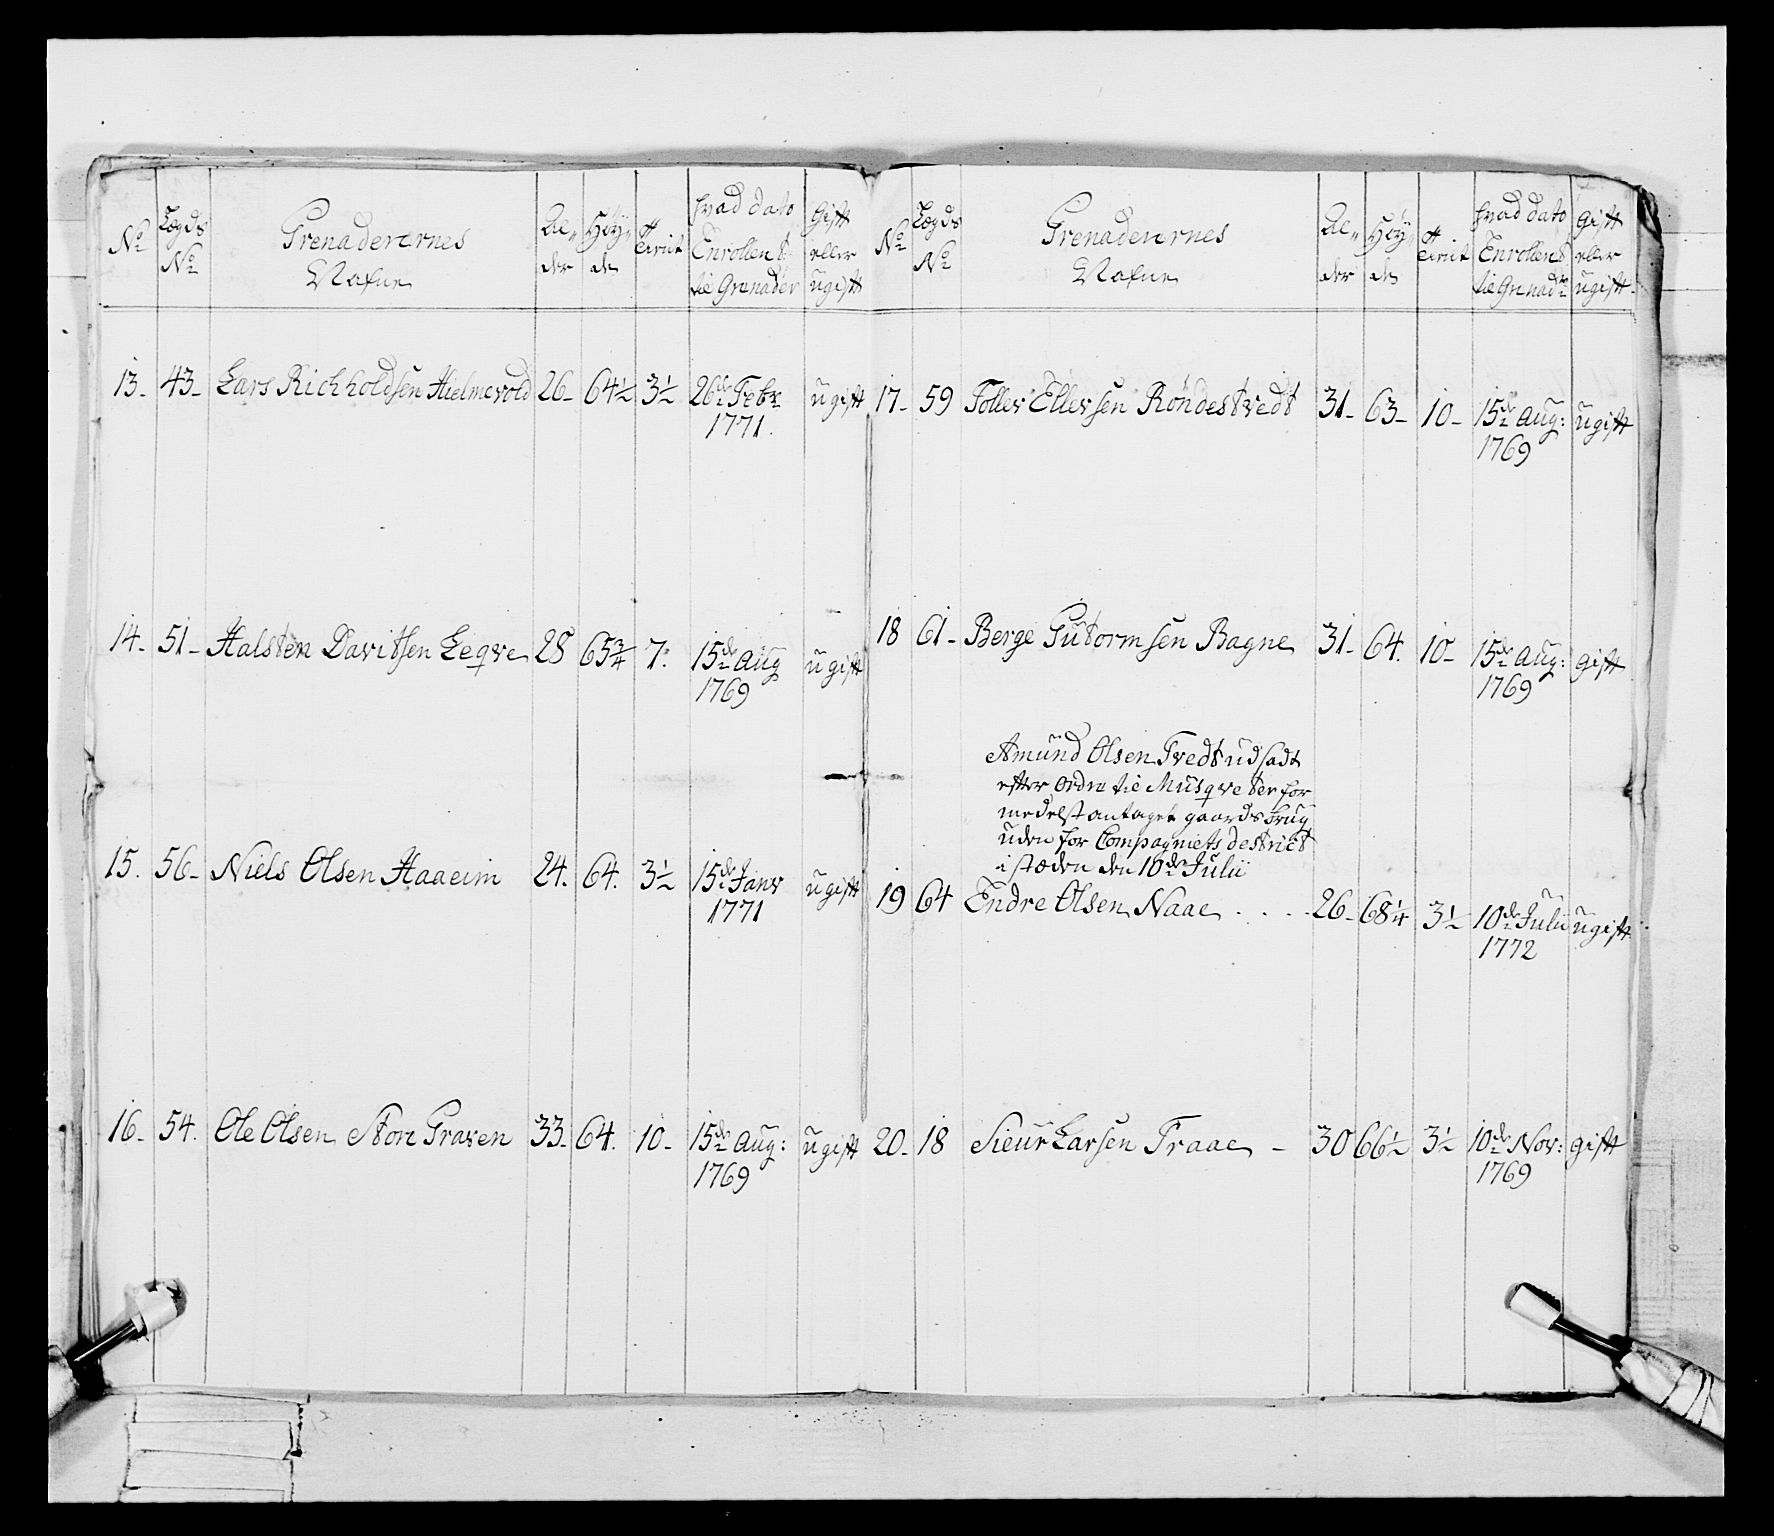 No Lægds No Grenaderernes Nafne Al„der Höy„de Hvad dato Enrollert til Grenader Gift eller ugift
13. 43 Lars Richholdsen Hielmevold 26 64½ 3½ 26de Febr 1771. ugift
14. 51 Halsten Davitsen Leqve 28 65¾ 7. 15de Aug 1769 ugift
15. 56 Niels Olsen Haaeim 24. 64. 3½ 15de Janv 1771 ugift
16. 54. Ole Olsen Store Graven 33 64. 10 15de Aug: 1769 ugift
No Lægds No Grenaderernes Nafne Al„der Höy„de Hvad dato Enrollert til Grenadr Gift eller ugift
17 59 Toller Ellersen Röndestvedt 31 63 10 15de Aug: 1769 ugift
18 61 Berge Gutormsen Bagne 31 64. 10 15de Aug: 1769 gift
Amund Olsen Tvedt udsadt
efter Ordre til Musqveter for
medelst antaget gaards brug
uden for Compagniets destrict
i stæden den 10de Julii
19 64 Endre Olsen Naae . . . . 26 68¼ 3½ 10de Julii 1772 ugift
20 18 Sieur Larsen Traae 30 66½ 3½ 10de Nov: 1769 gift